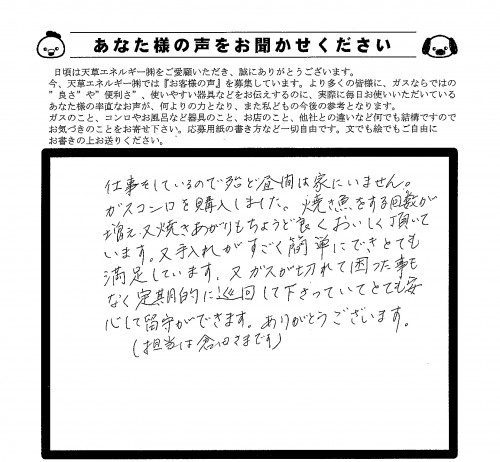 あなた様の声をお聞かせください
日頃は天草エネルギー㈱をご愛顧いただき、誠にありがとうございます。
今、天草エネルギー㈱では『お客様の声』を募集しています。より多くの皆様に、ガスならではの
”良さ”や”便利さ”、使いやすい器具などをお伝えするのに、実際に毎日お使いいただいている
あなた様の率直なお声が、何よりの力となり、また私どもの今後の参考となります。
ガスのこと、コンロやお風呂など器具のこと、お店のこと、他社との違いなど何でも結構ですので
お気づきのことをお寄せ下さい。応募用紙の書き方など一切自由です。文でも絵でもご自由に
お書きの上お送りください。
仕事をしているので殆ど昼間は家にいません。
ガスコンロを購入しました。焼き魚をする回数が
増え又焼きあがりもちょうど良くおいしく頂いて
います。又手入れがすごく簡単にできとても
満足しています。又ガスが切れて困った事も
なく定期的に巡回して下さっていてとても安
心して留守ができます。ありがとうございます。
(担当は倉田さまです)